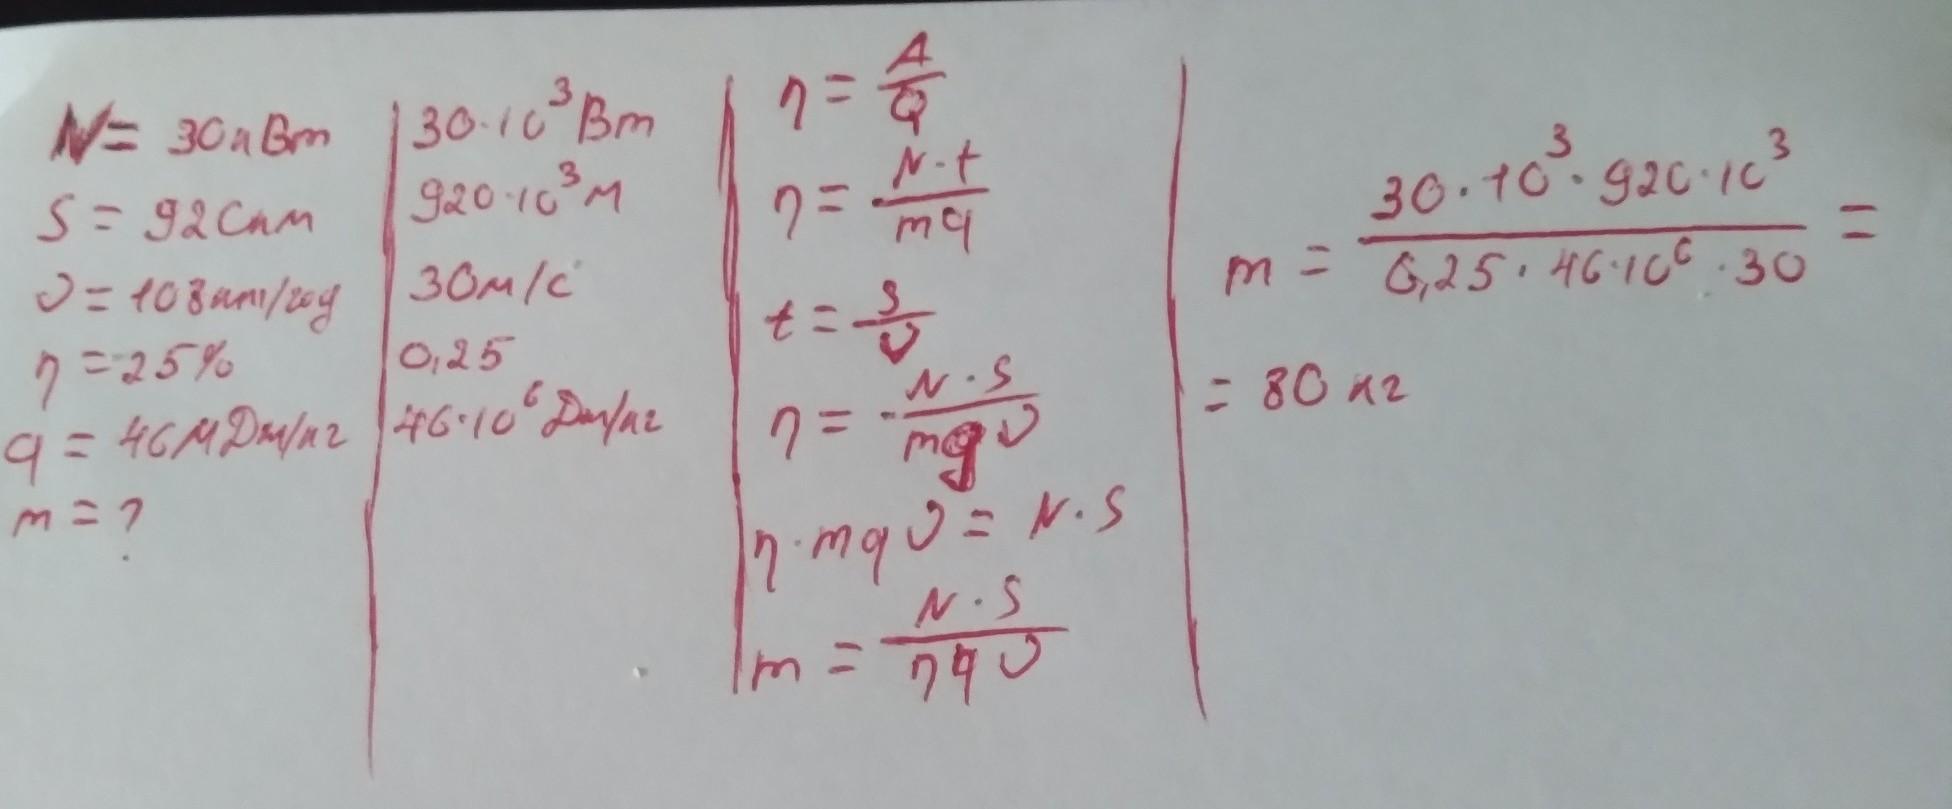 N = 30кВт
S = 920км
υ = 108км/год
η = 25%
q = 46МДж/кг
m = ?
30·10³Вт
920·10³м
30м/с
0,25
46·10⁶Дж/кг
η = A/Q
η = N·t/mq
t = S/υ
η = N·S/mqυ
η·mqυ = N·S
m = N·S/ηqυ
m = 30·10³·920·10³/0,25·46·10⁶·30 =
= 80 кг